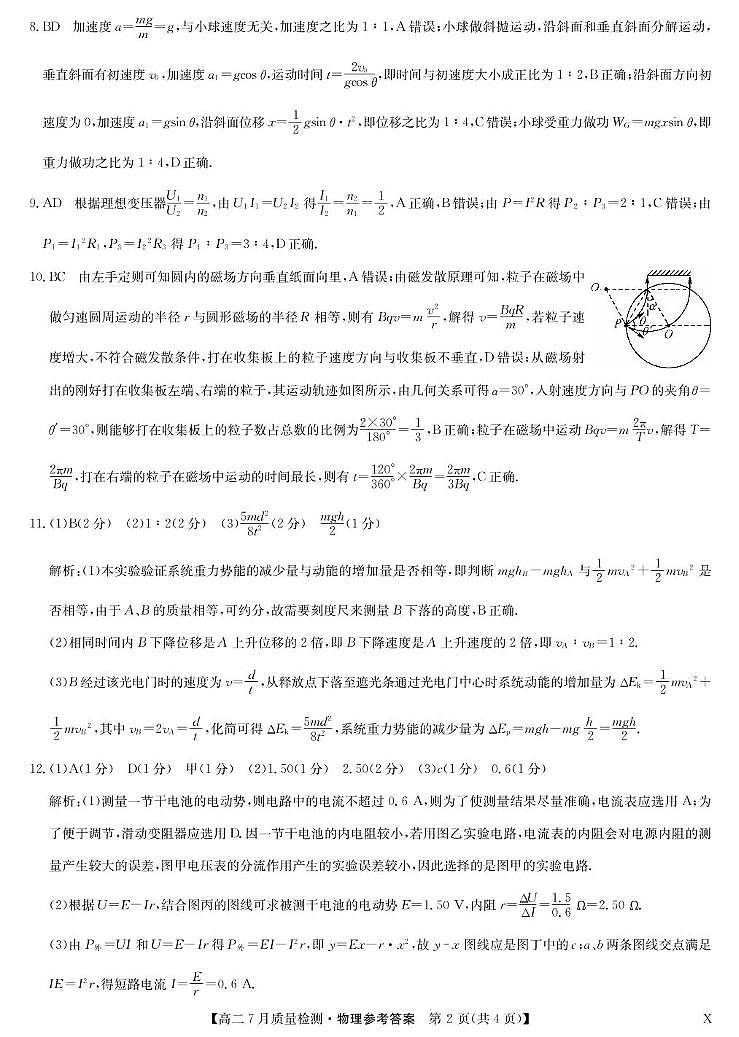 8. BD 加速度 a=mg/m=g,与小球速度无关,加速度之比为 1∶1,A 错误;小球做斜抛运动,沿斜面和垂直斜面分解运动,
垂直斜面有初速度 v₀,加速度 a₁=gcos θ,运动时间 t=2v₀/gcos θ,即时间与初速度大小成正比为 1∶2,B 正确;沿斜面方向初
速度为 0,加速度 a₁=gsin θ,沿斜面位移 x=1/2 gsin θ·t²,即位移之比为 1∶4,C 错误;小球受重力做功 W_G=mgxsin θ,即
重力做功之比为 1∶4,D 正确.
9. AD 根据理想变压器 U₁/U₂=n₁/n₂,由 U₁I₁=U₂I₂ 得 I₁/I₂=n₂/n₁=1/2,A 正确,B 错误;由 P=I²R 得 P₂∶P₃=2∶1,C 错误;由
P₁=I₁²R₁,P₃=I₂²R₃ 得 P₁∶P₃=3∶4,D 正确.
10. BC 由左手定则可知圆内的磁场方向垂直纸面向里,A 错误;由磁发散原理可知,粒子在磁场中
做匀速圆周运动的半径 r 与圆形磁场的半径 R 相等,则有 Bqv=m v²/r,解得 v=BqR/m,若粒子速
度增大,不符合磁发散条件,打在收集板上的粒子速度方向与收集板不垂直,D 错误;从磁场射
出的刚好打在收集板左端、右端的粒子,其运动轨迹如图所示,由几何关系可得 α=30°,入射速度方向与 PO 的夹角 θ=
θ′=30°,则能够打在收集板上的粒子数占总数的比例为 2×30°/180°=1/3,B 正确;粒子在磁场中运动 Bqv=m 2π/T v,解得 T=
2πm/Bq,打在右端的粒子在磁场中运动的时间最长,则有 t=120°/360°×2πm/Bq=2πm/3Bq,C 正确.
P
O
θ
α
11. (1)B(2 分) (2)1∶2(2 分) (3)5md²/8t²(2 分) mgh/2(1 分)
解析:(1)本实验验证系统重力势能的减少量与动能的增加量是否相等,即判断 mgh_B−mgh_A 与 1/2 mv_A²+1/2 mv_B² 是
否相等,由于 A、B 的质量相等,可约分,故需要刻度尺来测量 B 下落的高度,B 正确.
(2)相同时间内 B 下降位移是 A 上升位移的 2 倍,即 B 下降速度是 A 上升速度的 2 倍,即 v_A∶v_B=1∶2.
(3)B 经过该光电门时的速度为 v=d/t,从释放点下落至遮光条通过光电门中心时系统动能的增加量为 ΔE_k=1/2 mv_A²+
1/2 mv_B²,其中 v_B=2v_A=d/t,化简可得 ΔE_k=5md²/8t²,系统重力势能的减少量为 ΔE_p=mgh−mg h/2=mgh/2.
12. (1)A(1 分) D(1 分) 甲(1 分) (2)1.50(1 分) 2.50(2 分) (3)c(1 分) 0.6(1 分)
解析:(1)测量一节干电池的电动势,则电路中的电流不超过 0.6 A,则为了使测量结果尽量准确,电流表应选用 A;为
了便于调节,滑动变阻器应选用 D. 因一节干电池的内电阻较小,若用图乙实验电路,电流表的内阻会对电源内阻的测
量产生较大的误差,图甲电压表的分流作用产生的实验误差较小,因此选择的是图甲的实验电路.
(2)根据 U=E−Ir,结合图丙的图线可求被测干电池的电动势 E=1.50 V,内阻 r=ΔU/ΔI=1.5/0.6 Ω=2.50 Ω.
(3)由 P外=UI 和 U=E−Ir 得 P外=EI−I²r,即 y=Ex−r·x²,故 y-x 图线应是图丁中的 c;a、b 两条图线交点满足
IE=I²r,得短路电流 I=E/r=0.6 A.
【高二 7 月质量检测·物理参考答案 第 2 页(共 4 页)】 X